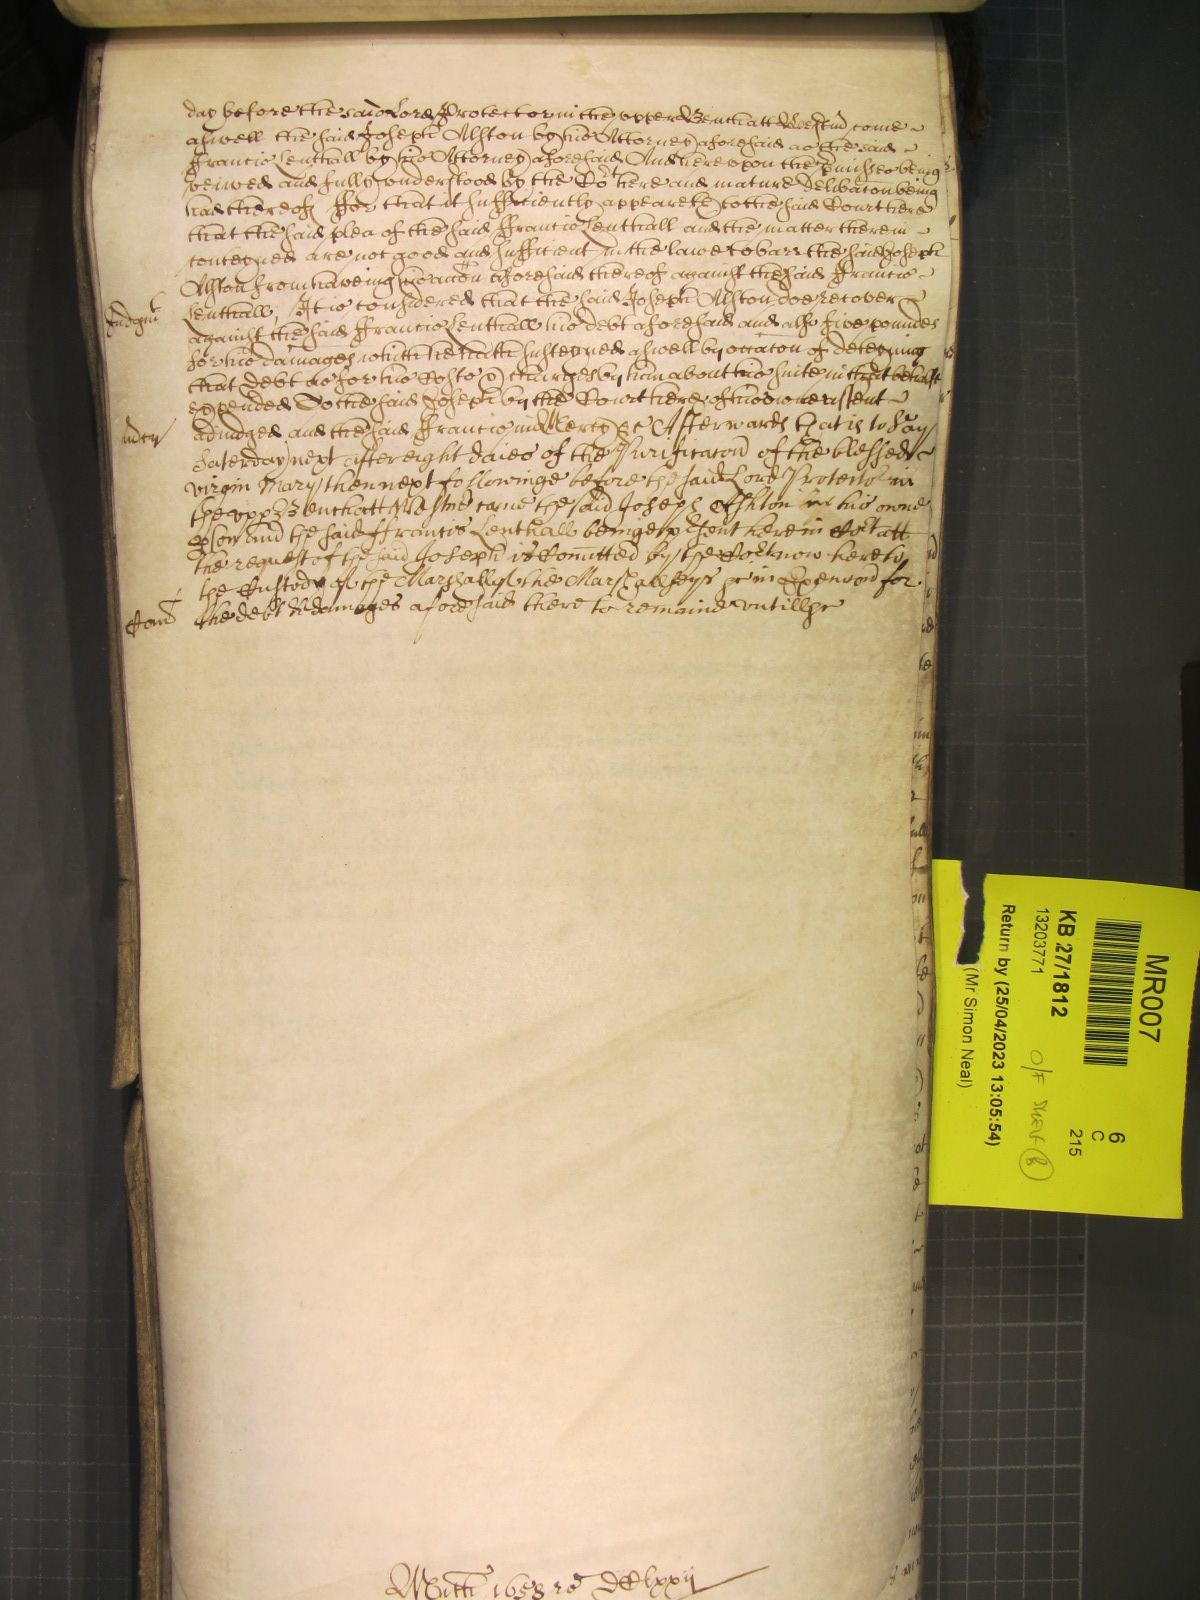 day before the said Lord Protector in the upper Bench att Westmr come
aswell the said Joseph Alston by his Attorney aforesaid as the said
Francis Lenthall by his Attorney aforesaid And hereupon the pmisses being
veiwed and fully understood by the Cort here and mature deliberacon being
had thereof ffor that it sufficiently appeareth to the said Court here
that the said plea of the said ffrancis Lenthall and the matter therein
conteyned are not good and sufficient in the lawe to barr the said Joseph
Alston from haveing his accon aforesaid thereof against the said ffrancis
Judgmt
Lenthall; It is considered that the said Joseph Alston doe recover
against the said ffrancis Lenthall his debt aforesaid and also five poundes
for his damages which he hath susteyned aswell by occacon of deteyning
that debt as for his Costs & charges by him about his suite in that behalfe
expended to the said Joseph by the Court here of his owne assent
mcy
adjudged and the said ffrancis in Mercy &c Afterwards that is to say
Saterday next after eight daies of the Purificacon of the blessed
virgin Mary then next followinge before the said Lord Protector in
the uppr Bench att Westmr came the said Joseph Alston in his owne
pson And the said ffrancis Lenthall beinge psent here in Cort att
the request of the said Joseph is Comitted by the Cort now here to
the Custody of the Marshall of the Marshallseys &c in Execucon for
Comr
the debt & damages aforesaid there to remaine untill &c
Mich 1658 ro DClxxij
MR007
KB 27/1812
13203771
Return by (25/04/2023 13:05:54)
(Mr Simon Neal)
6
C
215
O/F Shelf (B)